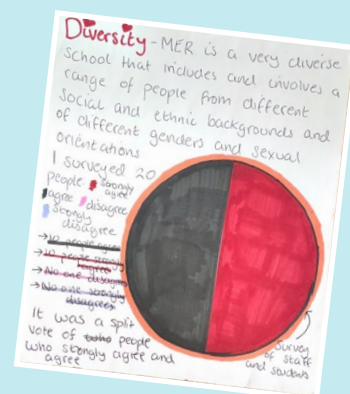 Diversity - MER is a very diverse
school that includes and involves a
range of people from different
social and ethnic backgrounds and
of different genders and sexual
orientations
I surveyed 20
people strongly
agree
agree disagree
strongly
disagree
→ 10 people agree
→ 10 people strongly
agree
→ No one disagrees
→ No one strongly
disagrees
It was a split
vote of who people
who strongly agree and
agree
Survey
of staff
and students